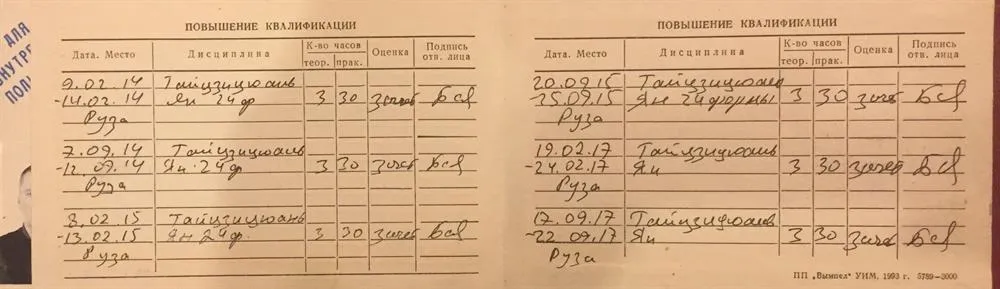 ДЛЯ
ВНУТРЕ
ПОЛ
ПОВЫШЕНИЕ КВАЛИФИКАЦИИ
Дата. Место Дисциплина К-во часов теор. прак. Оценка Подпись отв. лица
9.02.14 Тайцзицюань
-14.02.14 Ян 24ф 3 30 зачет
Руза
7.09.14 Тайцзицюань
-12.09.14 Ян 24ф 3 30 зачет
Руза
8.02.15 Тайцзицюань
-13.02.15 Ян 24ф. 3 30 зачет
Руза
ПОВЫШЕНИЕ КВАЛИФИКАЦИИ
Дата. Место Дисциплина К-во часов теор. прак. Оценка Подпись отв. лица
20.09.15 Тайцзицюань
-25.09.15 Ян 24 формы 3 30 зачет
Руза
19.02.17 Тайцзицюань
-24.02.17 Ян 3 30 зачет
Руза
17.09.17 Тайцзицюань
-22.09.17 Ян 3 30 зачет
Руза
ПП „Вымпел" УИМ, 1993 г. 5789—3000